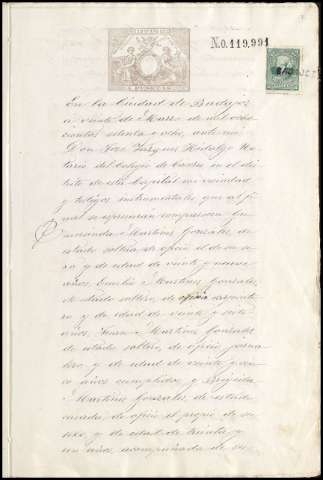 N.0.119,991
En la Ciudad de Badajoz
a veinte de Marzo de mil ocho
cientos setenta y ocho, ante mi
Don José Vazquez Hidalgo No
tario del Colegio de Caceres en el dis
trito de esta Capital mi vecindad
y testigos instrumentales, que al fi
nal se espresaran comparecen
Martinez Gonzalez, de
estado soltera de oficio el de su se
xo y de edad de veinte y nueve
años, Emilio Martinez Gonzalez,
de estado soltero, de oficio
y de edad de veinte y siete
años, Martinez Gonzalez
de estado soltero, de oficio jorna
lero, y de edad de veinte y cin
co años cumplidos y Brigida
Martinez Gonzalez, de estado
casada, de oficio el propio de su
sexo, y de edad de treinta y
un años, acompañada de su